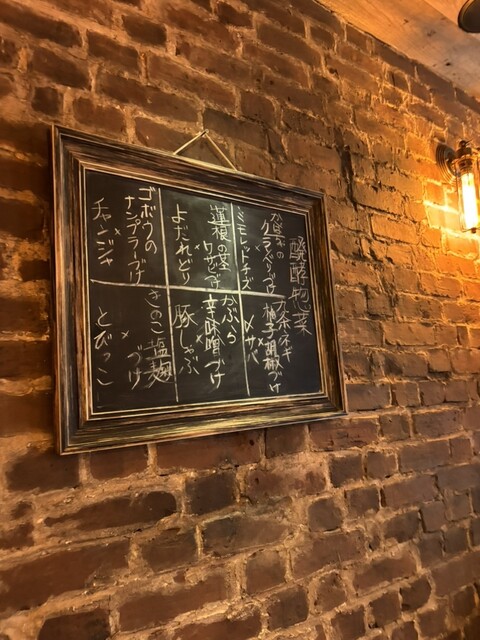 醗酵惣菜
かぼちゃの
クランベリーづけ
×
ミモレットチーズ
蓮根の茎
ワサビづけ
×
よだれどり
ゴボウの
ナンプラーづけ
×
チャンジャ
九条ネギ
柚子胡椒づけ
×
〆サバ
かぶら
辛味噌づけ
×
豚しゃぶ
きのこ塩麹
づけ
×
とびっこ